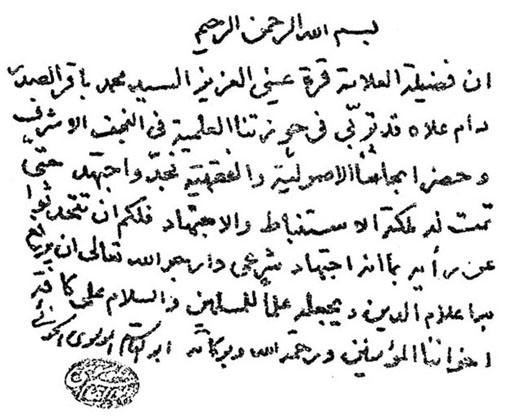 بسم الله الرحمن الرحيم
ان فضيلة العلامة قرة عيني العزيز السيد محمد باقر الصدر
دام علاه قد تربى في حوزتنا العلمية في النجف الاشرف
وحضر ابحاثنا الاصولية والفقهية بجد واجتهد حتى
تمت له ملكة الاستنباط والاجتهاد فلكم ان تتحدثوا
عن رأيه بما انه اجتهاد شرعي وارجو الله تعالى ان يرفع
به اعلام الدين ويجعله علما للمسلمين والسلام على كافة
اخواننا المؤمنين ورحمة الله وبركاته ابو القاسم الموسوي الخوئي